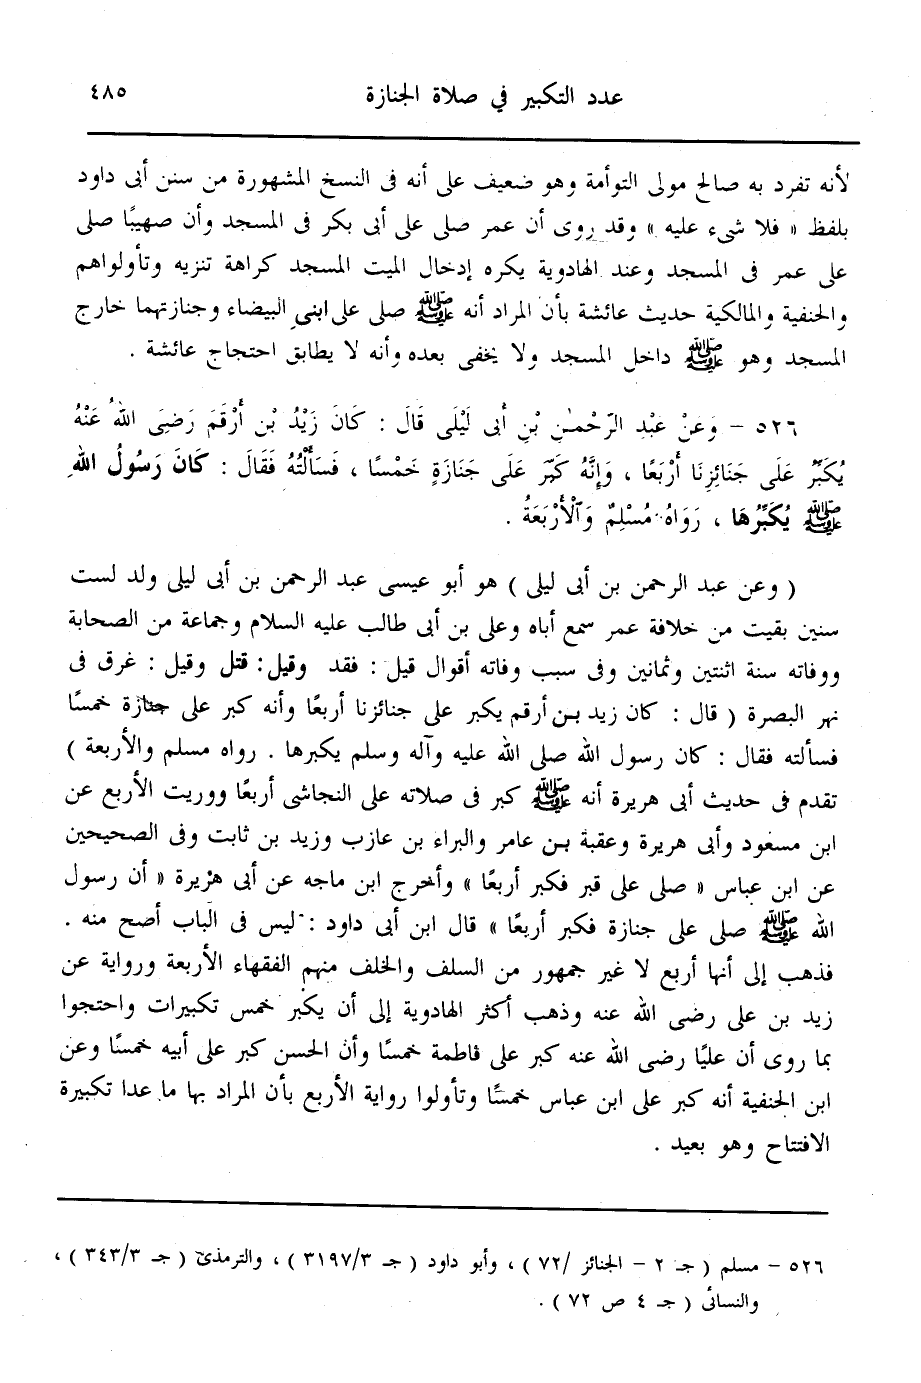 عدد التكبير في صلاة الجنازة ٤٨٥
لأنه تفرد به صالح مولى التوأمة وهو ضعيف على أنه فى النسخ المشهورة من سنن أبى داود
بلفظ « فلا شىء عليه » وقد روى أن عمر صلى على أبى بكر فى المسجد وأن صهيبًا صلى
على عمر فى المسجد وعند الهادوية يكره إدخال الميت المسجد كراهة تنزيه وتأولواهم
والحنفية والمالكية حديث عائشة بأن المراد أنه ﷺ صلى على ابنى البيضاء وجنازتهما خارج
المسجد وهو ﷺ داخل المسجد ولا يخفى بعده وأنه لا يطابق احتجاج عائشة .
٥٢٦ - وَعَنْ عَبْدِ الرَّحْمٰنِ بْنِ أَبِى لَيْلَى قَالَ : كَانَ زَيْدُ بْن أَرْقَمَ رَضِىَ اللهُ عَنْهُ
يُكَبِّرُ عَلَى جَنَائِزِنَا أَرْبَعًا ، وَإِنَّهُ كَبَّرَ عَلَى جَنَازَةٍ خَمْسًا ، فَسَأَلْتُهُ فَقَالَ : كَانَ رَسُولُ اللهِ
ﷺ يُكَبِّرُهَا ، رَوَاهُ مُسْلِمٌ وَالْأَرْبَعَةُ .
( وعن عبد الرحمن بن أبى ليلى ) هو أبو عيسى عبد الرحمن بن أبى ليلى ولد لست
سنين بقيت من خلافة عمر سمع أباه وعلى بن أبى طالب عليه السلام وجماعة من الصحابة
ووفاته سنة اثنتين وثمانين وفى سبب وفاته أقوال قيل : فقد وقيل : قتل وقيل : غرق فى
نهر البصرة ( قال : كان زيد بن أرقم يكبر على جنائزنا أربعًا وأنه كبر على جنازة خمسًا
فسألته فقال : كان رسول الله صلى الله عليه وآله وسلم يكبرها . رواه مسلم والأربعة )
تقدم فى حديث أبى هريرة أنه ﷺ كبر فى صلاته على النجاشى أربعًا ووريت الأربع عن
ابن مسعود وأبى هريرة وعقبة بن عامر والبراء بن عازب وزيد بن ثابت وفى الصحيحين
عن ابن عباس « صلى على قبر فكبر أربعًا » وأخرج ابن ماجه عن أبى هريرة « أن رسول
الله ﷺ صلى على جنازة فكبر أربعًا » قال ابن أبى داود : ليس فى الباب أصح منه .
فذهب إلى أنها أربع لا غير جمهور من السلف والخلف منهم الفقهاء الأربعة ورواية عن
زيد بن على رضى الله عنه وذهب أكثر الهادوية إلى أن يكبر خمس تكبيرات واحتجوا
بما روى أن عليًا رضى الله عنه كبر على فاطمة خمسًا وأن الحسن كبر على أبيه خمسًا وعن
ابن الحنفية أنه كبر على ابن عباس خمسًا وتأولوا رواية الأربع بأن المراد بها ما عدا تكبيرة
الافتتاح وهو بعيد .
٥٢٦ - مسلم ( جـ ٢ - الجنائز /٧٢ ) ، وأبو داود ( جـ ٣١٩٧/٣ ) ، والترمذى ( جـ ٣٤٣/٣ ) ،
والنسائى ( جـ ٤ ص ٧٢ ) .